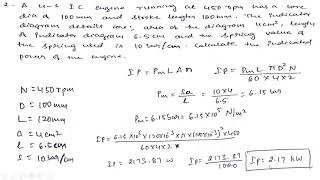 2. A 4-S IC engine running at 450 rpm has a bore
dia of 100mm and stroke length 120mm. The indicator
diagram details are; area of the diagram 4cm², length
of indicator diagram 6.5cm and the spring value of
the spring used is 10 bar/cm. Calculate the indicated
power of the engine.
N = 450 rpm
D = 100mm
L = 120mm
a = 4cm²
l = 6.5cm
S = 10 bar/cm
IP = Pm L A n
IP = Pm L π D² N
60 × 4 × 2
Pm = Sa = 10×4 = 6.15 bar
l 6.5
Pm = 6.15 bar = 6.15×10⁵ N/m²
IP = 6.15×10⁵×(120×10⁻³)×π×(100×10⁻³)²×450
60×4×2
IP = 2173.87 W
IP = 2173.87
1000
IP = 2.17 kW